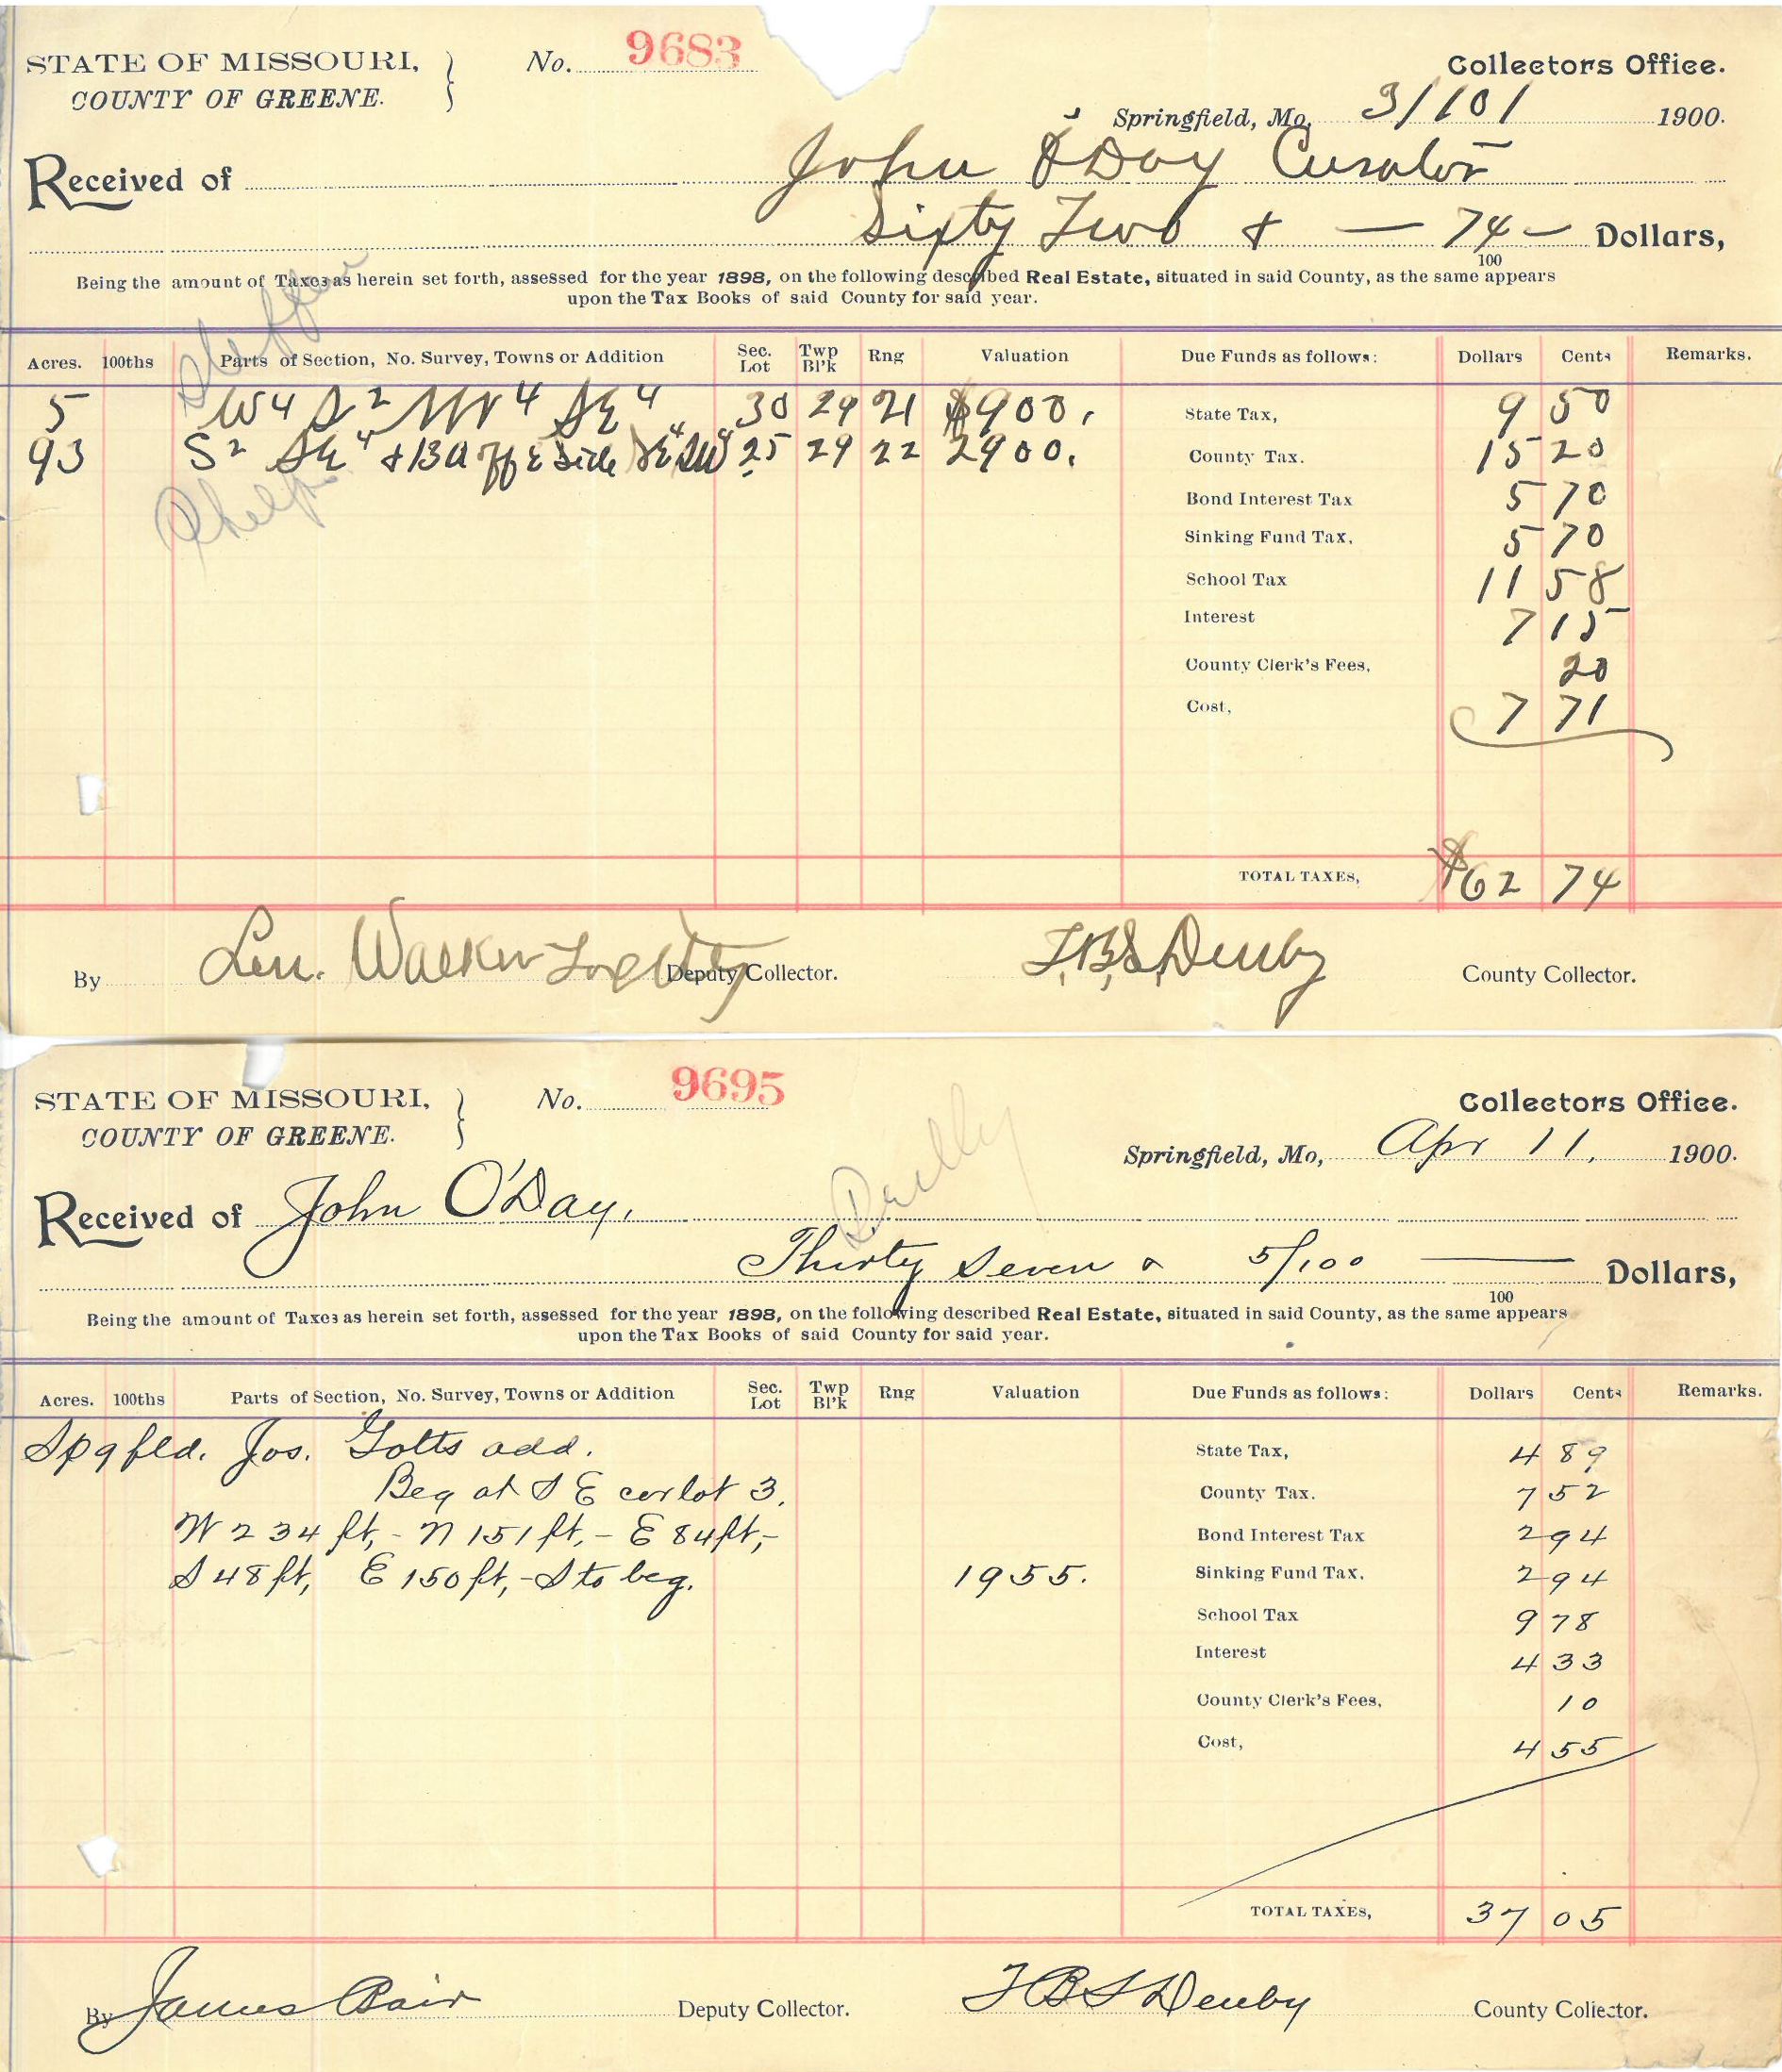 STATE OF MISSOURI, } No. 9683 Collectors Office.
COUNTY OF GREENE. Springfield, Mo, 3/101 1900.
Received of John O'Day Curator
Sixty Two & — 74 — Dollars,
100
Being the amount of Taxes as herein set forth, assessed for the year 1898, on the following described Real Estate, situated in said County, as the same appears
upon the Tax Books of said County for said year.
Acres. 100ths Parts of Section, No. Survey, Towns or Addition Sec. Lot Twp Bl'k Rng Valuation Due Funds as follows: Dollars Cents Remarks.
5 W4 S2 NW4 SE4 30 29 21 $900. State Tax, 9 50
93 S2 SE4 & 13 a off E Side SE4 SW4 25 29 22 2900. County Tax. 15 20
Phelps
Bond Interest Tax 5 70
Sinking Fund Tax, 5 70
School Tax 11 58
Interest 7 15
County Clerk's Fees, 20
Cost, 7 71
TOTAL TAXES, $62 74
By Len. Walker Deputy Collector. F.B.S. Denby County Collector.
STATE OF MISSOURI, } No. 9695 Collectors Office.
COUNTY OF GREENE. Springfield, Mo, Apr 11, 1900.
Received of John O'Day,
Thirty Seven & 5/100 — Dollars,
100
Being the amount of Taxes as herein set forth, assessed for the year 1898, on the following described Real Estate, situated in said County, as the same appears
upon the Tax Books of said County for said year.
Acres. 100ths Parts of Section, No. Survey, Towns or Addition Sec. Lot Twp Bl'k Rng Valuation Due Funds as follows: Dollars Cents Remarks.
Spgfld. Jos. Gotts add. State Tax, 4 89
Beg at S E cor lot 3, County Tax. 7 52
W 234 ft, - N 151 ft, - E 84 ft, - Bond Interest Tax 2 94
S 48 ft, E 150 ft, - S to beg. 1955. Sinking Fund Tax. 2 94
School Tax 9 78
Interest 4 33
County Clerk's Fees, 10
Cost, 4 55
TOTAL TAXES, 37 05
By James Bair Deputy Collector. F B S Denby County Collector.